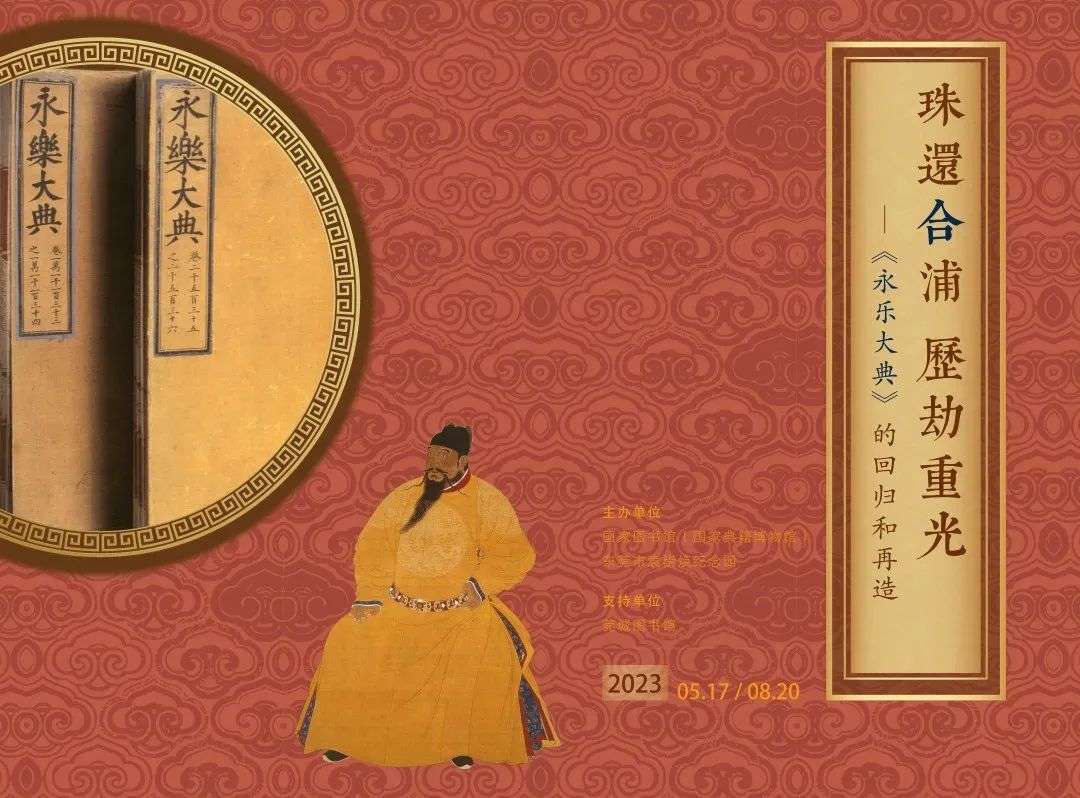 珠還合浦 歷劫重光
——《永乐大典》的回归和再造
永樂大典
卷二千五百三十五
之二千五百三十六
永樂大典
卷一萬一千一百三十三
之一萬一千一百三十四
主办单位
国家图书馆（国家典籍博物馆）
东莞市袁崇焕纪念园
支持单位
莞城图书馆
2023
05.17 / 08.20